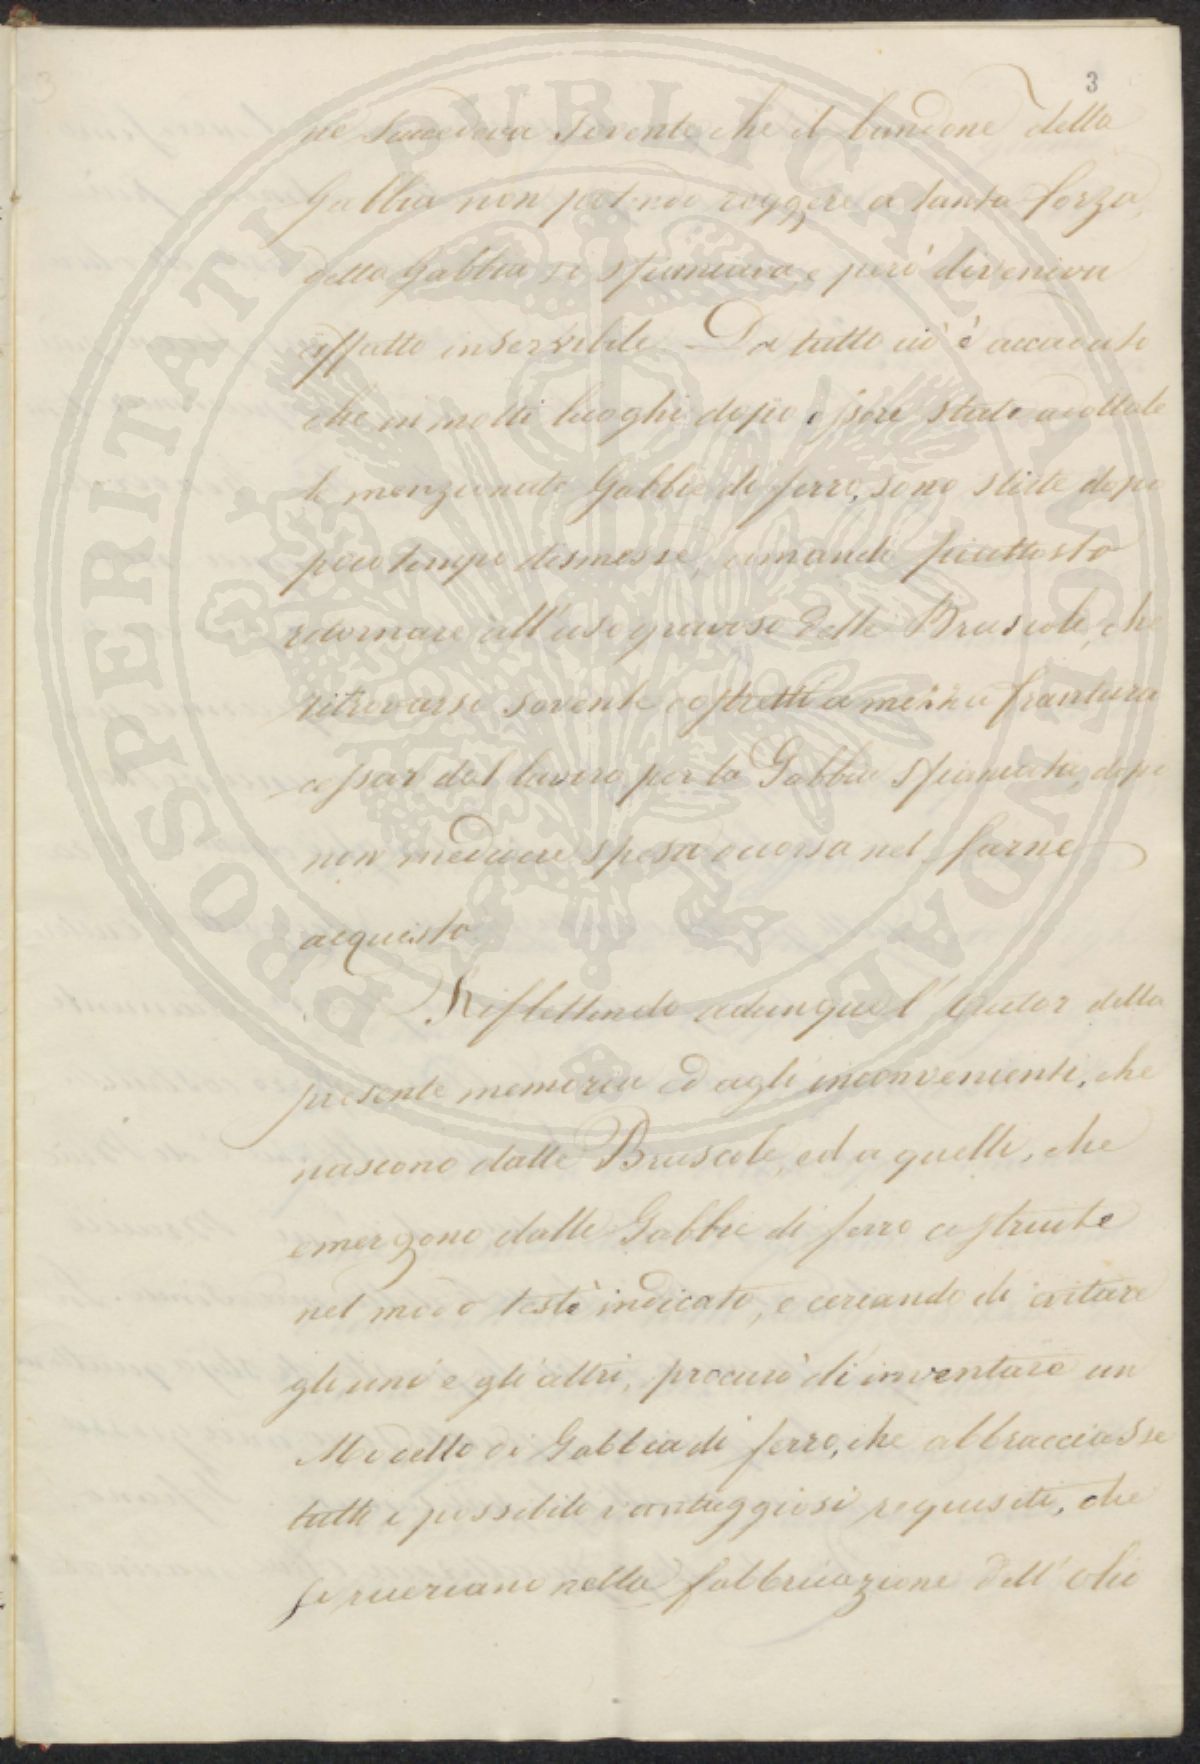 3
ne succedeva sovente che il bandone della
Gabbia non potendo reggere a tanta forza,
della Gabbia si sfiancava, e però diveniva
affatto inservibile. Da tutto ciò è accaduto
che in molti luoghi dopo essere state adottate
le menzionate Gabbie di ferro, sono state dopo
poco tempo dismesse, amando piuttosto
ritornare all'uso gravoso delle Bruscole, che
ritrovarsi sovente costretti a mezza frantura
cessar dal lavoro per la Gabbia sfiancata, dopo
non mediocre spesa occorsa nel farne
acquisto.
Riflettendo adunque l'Autor della
presente memoria ed agli inconvenienti, che
nascono dalle Bruscole, ed a quelli, che
emergono dalle Gabbie di ferro costruite
nel modo testè indicato, e cercando di evitare
gli uni e gli altri, procurò di inventare un
Modello di Gabbia di ferro, che abbracciasse
tutti i possibili vantaggiosi requisiti, che
si ricercano nella fabbricazione dell'olio
PROSPERITATI PVBLICAE AVGENDAE